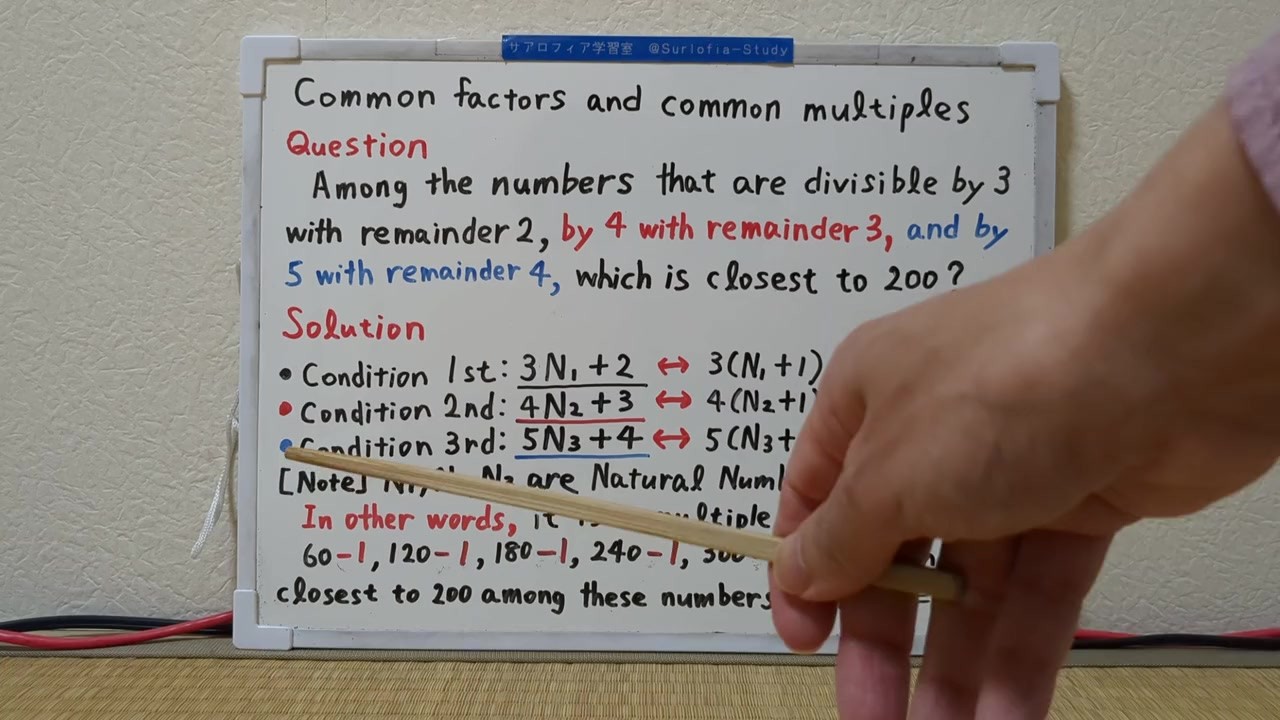 サアロフィア学習室 @Surlofia-Study
Common factors and common multiples
Question
Among the numbers that are divisible by 3
with remainder 2, by 4 with remainder 3, and by
5 with remainder 4, which is closest to 200?
Solution
• Condition 1st: 3N₁+2 ↔ 3(N₁+1)
• Condition 2nd: 4N₂+3 ↔ 4(N₂+1
• Condition 3rd: 5N₃+4 ↔ 5(N₃+
[Note] are Natural
In other words,
60-1, 120-1, 180-1, 240-1,
closest to 200 among these numbers